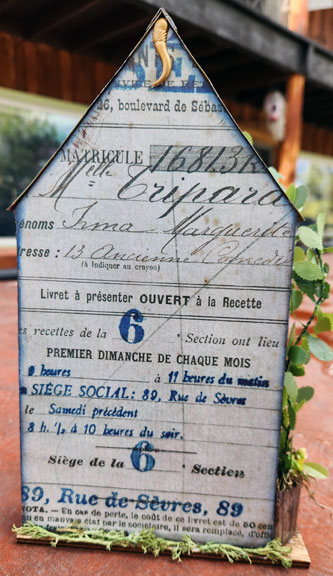 26, boulevard de Sébas
MATRICULE 16813
Melle Tripard
énoms Irma Marguerite
resse : 13 Ancienne Comédie
(à indiquer au crayon)
Livret à présenter OUVERT à la Recette
es recettes de la 6e Section ont lieu
PREMIER DIMANCHE DE CHAQUE MOIS
9 heures à 11 heures du matin
au SIÈGE SOCIAL: 89, Rue de Sèvres
le Samedi précédent
8 h. ½ à 10 heures du soir.
Siège de la 6e Section
89, Rue de Sèvres, 89
NOTA. — En cas de perte, le coût de ce livret est de 50 cen
en mauvais état par le sociétaire, il sera remplacé, d'offi